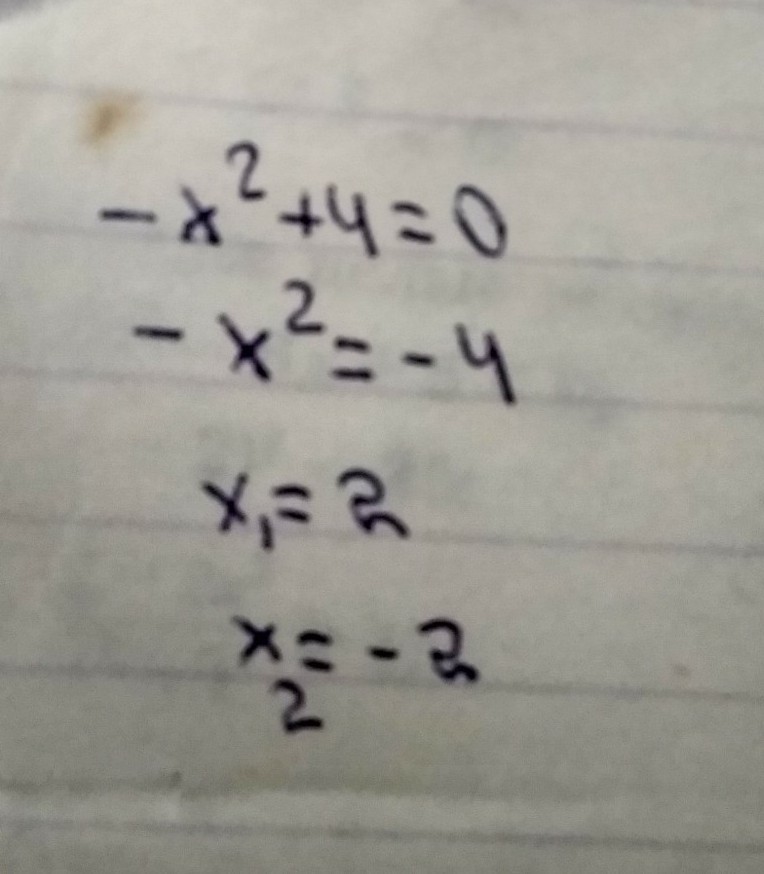 -x²+4=0
-x²=-4
x₁=2
x₂=-2